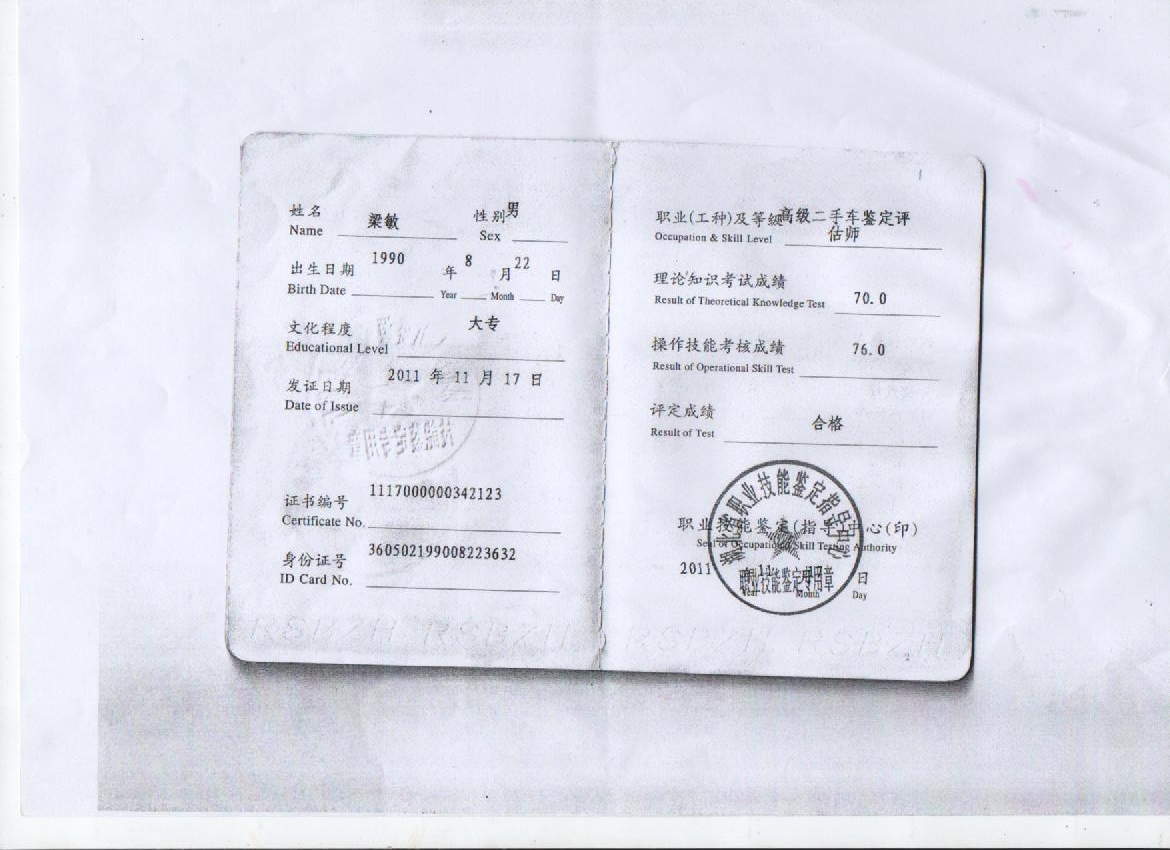 姓名 梁敏 性别 男
Name Sex
出生日期 1990 年 8 月 22 日
Birth Date Year Month Day
文化程度 大专
Educational Level
发证日期 2011 年 11 月 17 日
Date of Issue
技能鉴定专用章
证书编号 1117000000342123
Certificate No.
身份证号 360502199008223632
ID Card No.
职业(工种)及等级 高级二手车鉴定评
Occupation & Skill Level 估师
理论知识考试成绩
Result of Theoretical Knowledge Test 70.0
操作技能考核成绩 76.0
Result of Operational Skill Test
评定成绩 合格
Result of Test
湖北省职业技能鉴定指导中心
职业技能鉴定(指导)中心(印)
Seal of Occupational Skill Testing Authority
2011 年 11 月 日
职业技能鉴定专用章
Year Month Day
RSBZH RSBZH RSBZH RSBZH